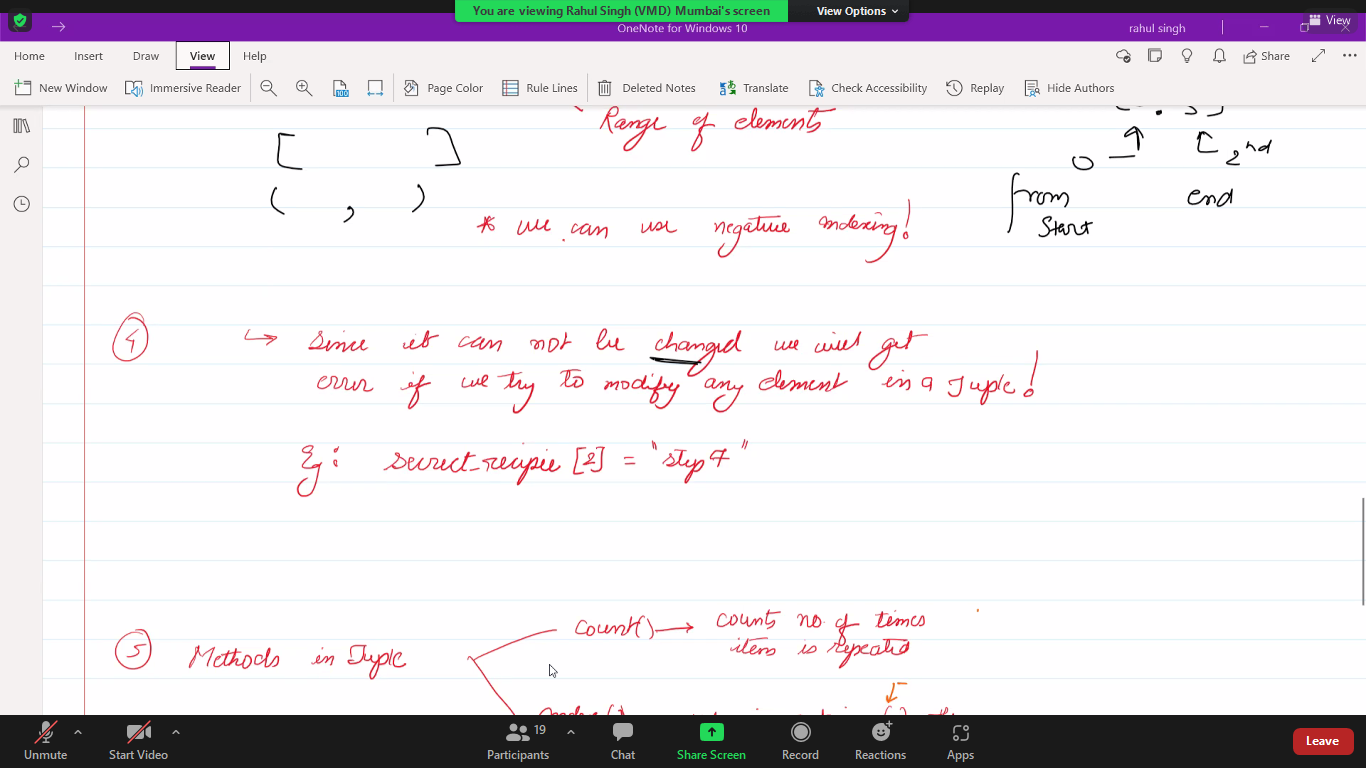 You are viewing Rahul Singh (VMD) Mumbai's screen
View Options
View
OneNote for Windows 10
rahul singh
Home Insert Draw View Help
Share
New Window Immersive Reader 100 Page Color Rule Lines Deleted Notes Translate Check Accessibility Replay Hide Authors
Range of elements
[ ]
0 2nd
( , )
from end
Start
* we can use negative indexing!
4 ↳ Since it can not be changed we will get
error if we try to modify any element in a Tuple!
Eg: secrect_recipie [2] = "step 7"
5 Methods in Tuple
count() → counts no. of times
item is repeated
Unmute Start Video Participants 19 Chat Share Screen Record Reactions Apps Leave